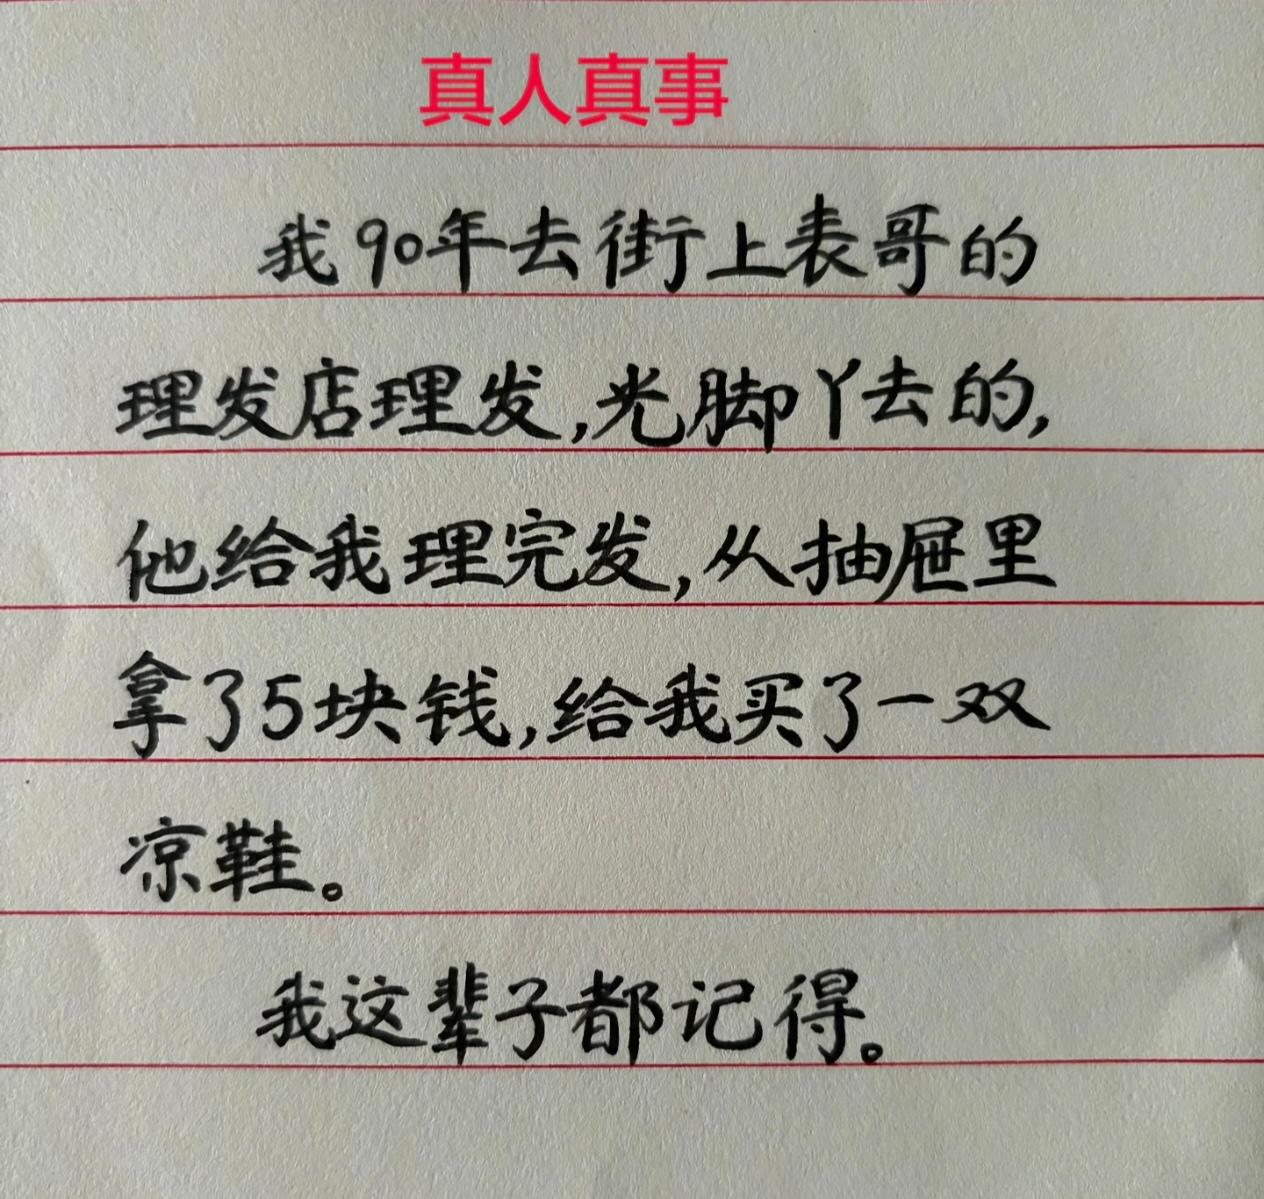 真人真事
我90年去街上表哥的
理发店理发,光脚丫去的,
他给我理完发,从抽屉里
拿了5块钱,给我买了一双
凉鞋。
我这辈子都记得。